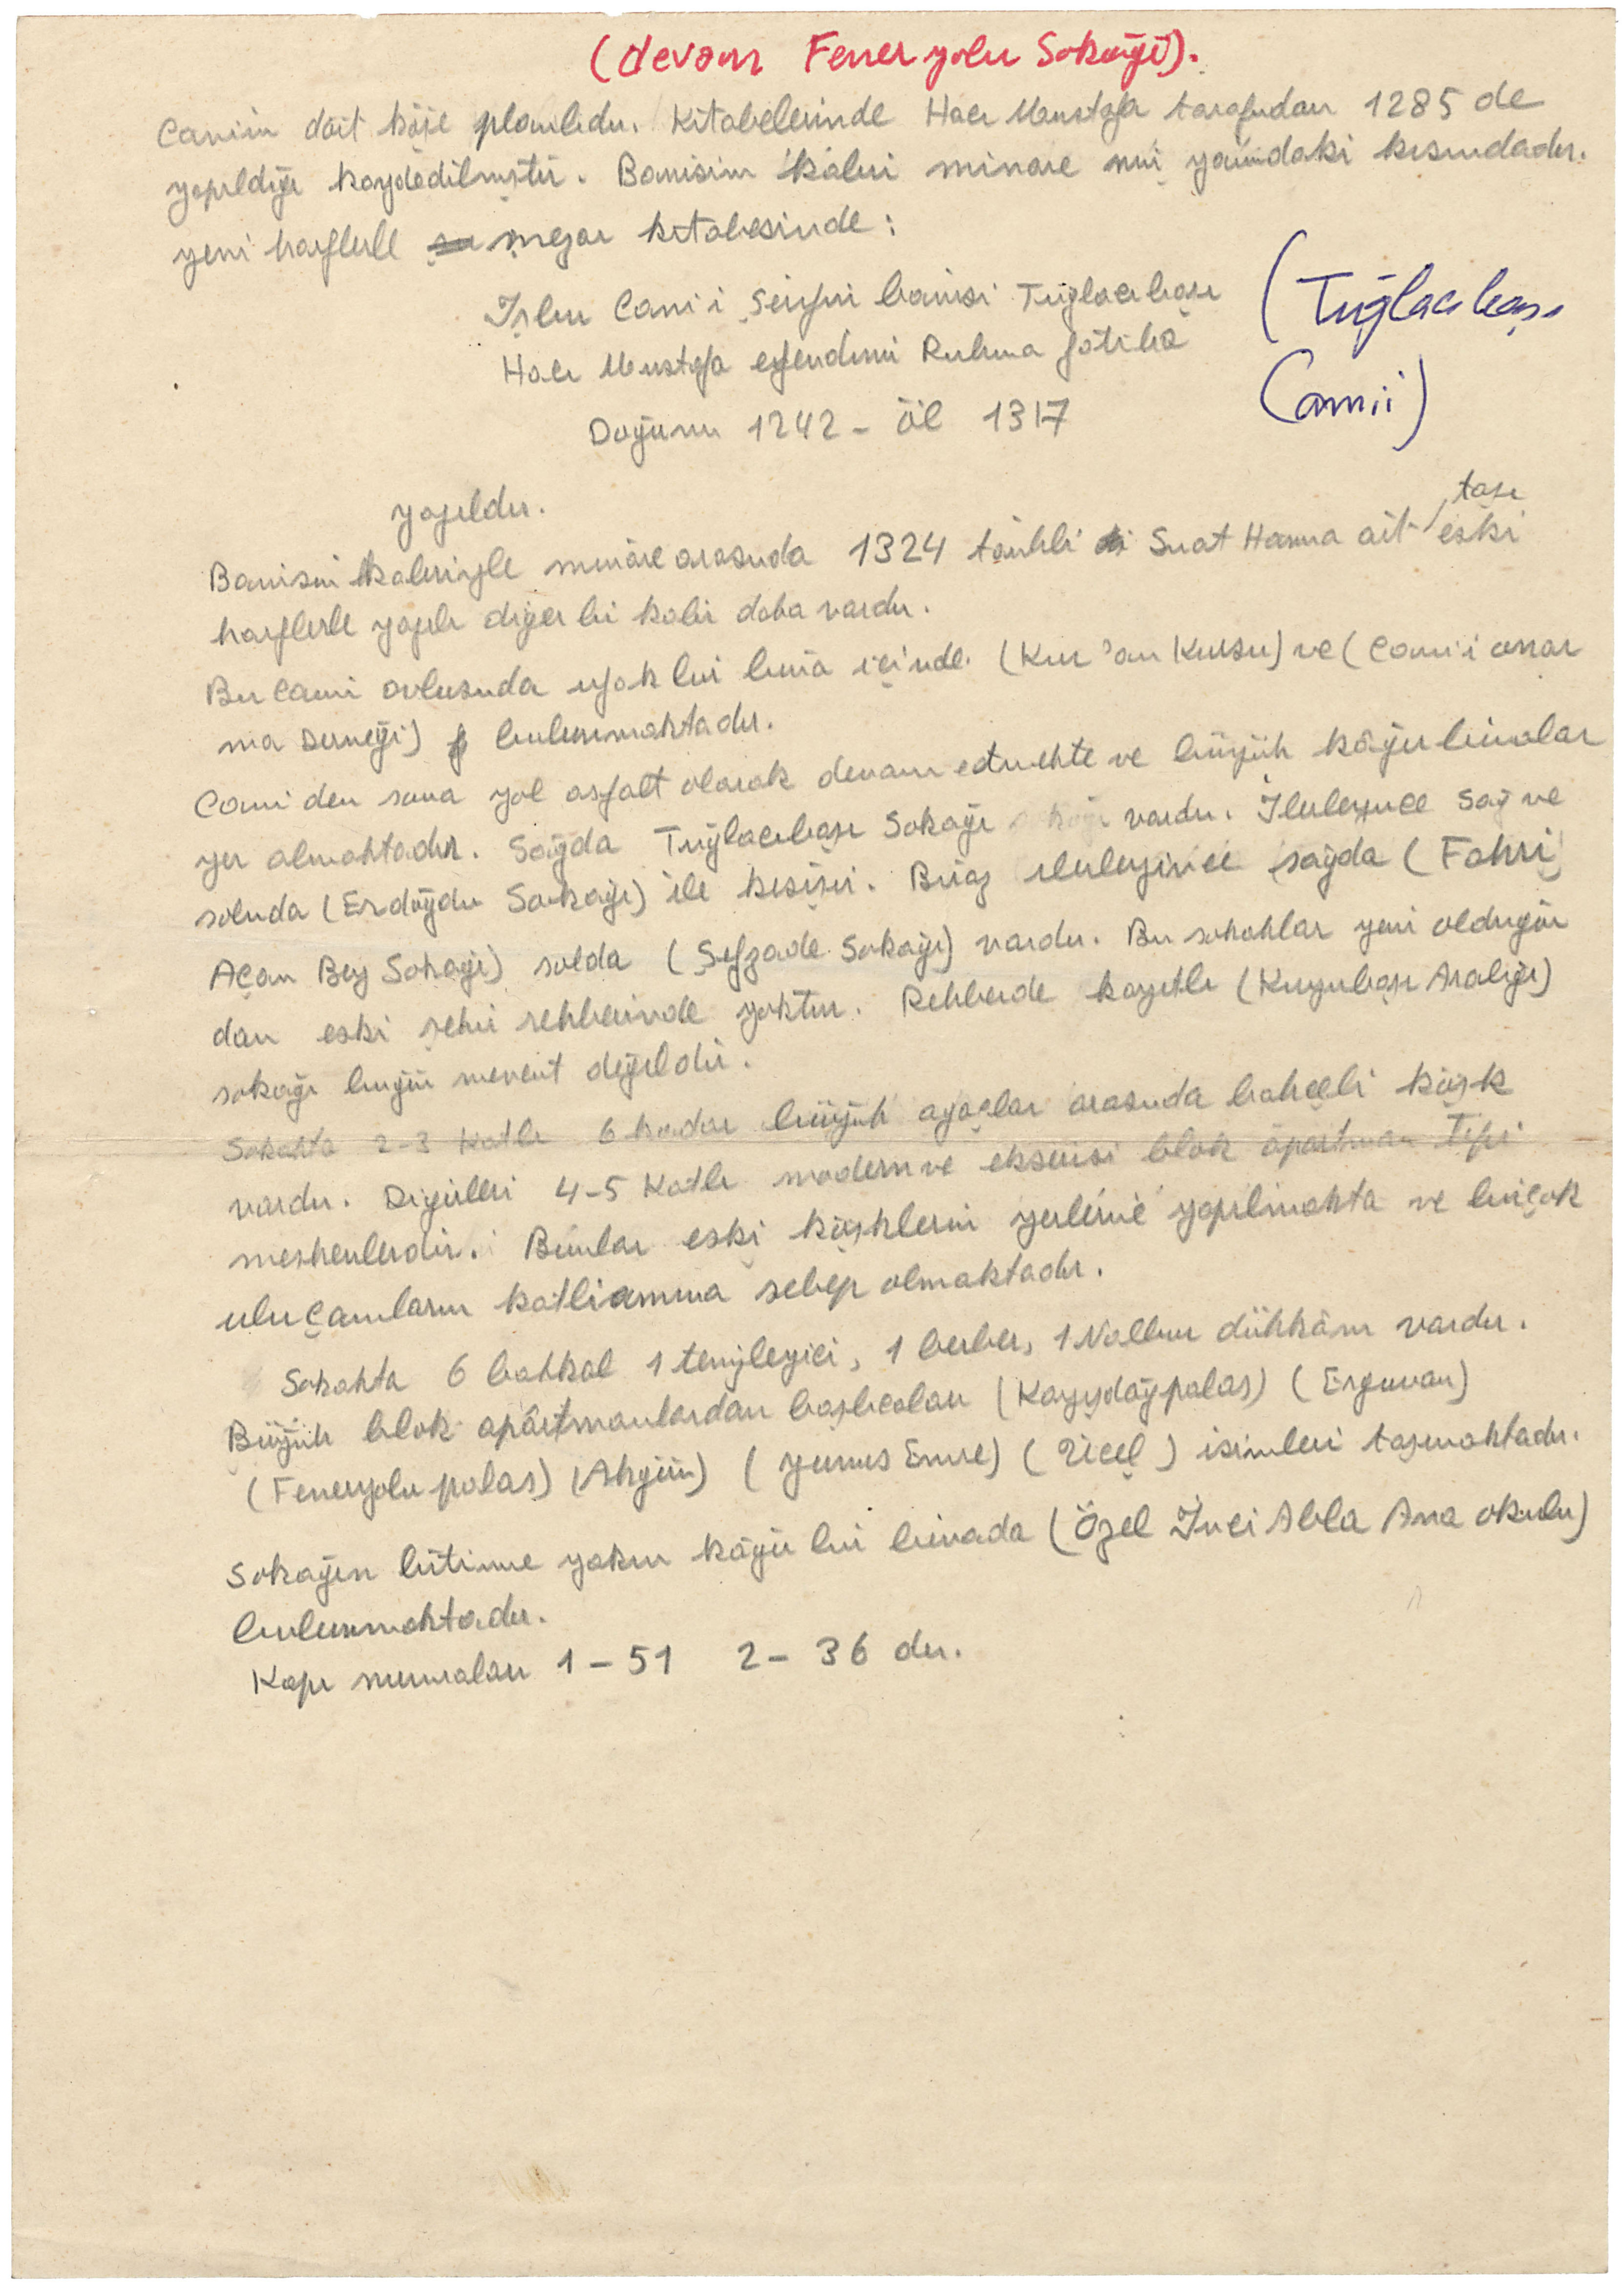 (devam Feneryolu Sokağı).
Camiin dört köşe planlıdır. Kitabelerinde Hacı Mustafa tarafından 1285 de
yapıldığı kaydedilmiştir. Banisinin kabri minare nin yanındaki kısımdadır.
yeni harflerle mezar kitabesinde :
İşbu Cami i Şerifin banisi Tuğlacıbaşı
(Tuğlacıbaşı
Hacı Mustafa efendinin Ruhuna fatiha
Camii)
Doğumu 1242 - Öl 1317
yazılıdır.
taşı
Banisinin kabriyle minare arasında 1324 tarihli Suat Hanıma ait eski
harflerle yazılı diğer bir kabir daha vardır.
Bu cami avlusunda ufak bir bina içinde (Kur'an Kursu) ve (Cami'i onar
ma Derneği) bulunmaktadır.
Cami den sonra yol asfalt olarak devam etmekte ve büyük kâgir binalar
yer almaktadır. Sağda Tuğlacıbaşı Sokağı vardır. İlerleyince sağ ve
solunda (Erdoğdu Sokağı) ile kesişir. Biraz ilerleyince sağda (Fahri
Açan Bey Sokağı) solda (Şefzade Sokağı) vardır. Bu sokaklar yeni olduğun
dan eski şehir rehberinde yoktur. Rehberde kayıtlı (Kuyubaşı Aralığı)
sokağı bugün mevcut değildir.
Sokakta 2-3 Katlı 6 kadar büyük ağaçlar arasında bahçeli köşk
vardır. Diğerleri 4-5 Katlı modern ve ekserisi blok apartman Tipi
meskenlerdir. Bunlar eski köşklerin yerlerine yapılmakta ve birçok
ulu çamların katliamına sebep olmaktadır.
Sokakta 6 bakkal 1 temizleyici, 1 berber, 1 Nalbur dükkânı vardır.
Büyük blok apartmanlardan başlıcaları (Kayışdağ palas) (Erguvan)
(Feneryolu palas) (Akgün) (Yunus Emre) (Yücel) isimleri taşımaktadır.
Sokağın bitimine yakın kâgir bir binada (Özel İnci Abla Ana okulu)
bulunmaktadır.
Kapı numaraları 1 - 51 2 - 36 dır.